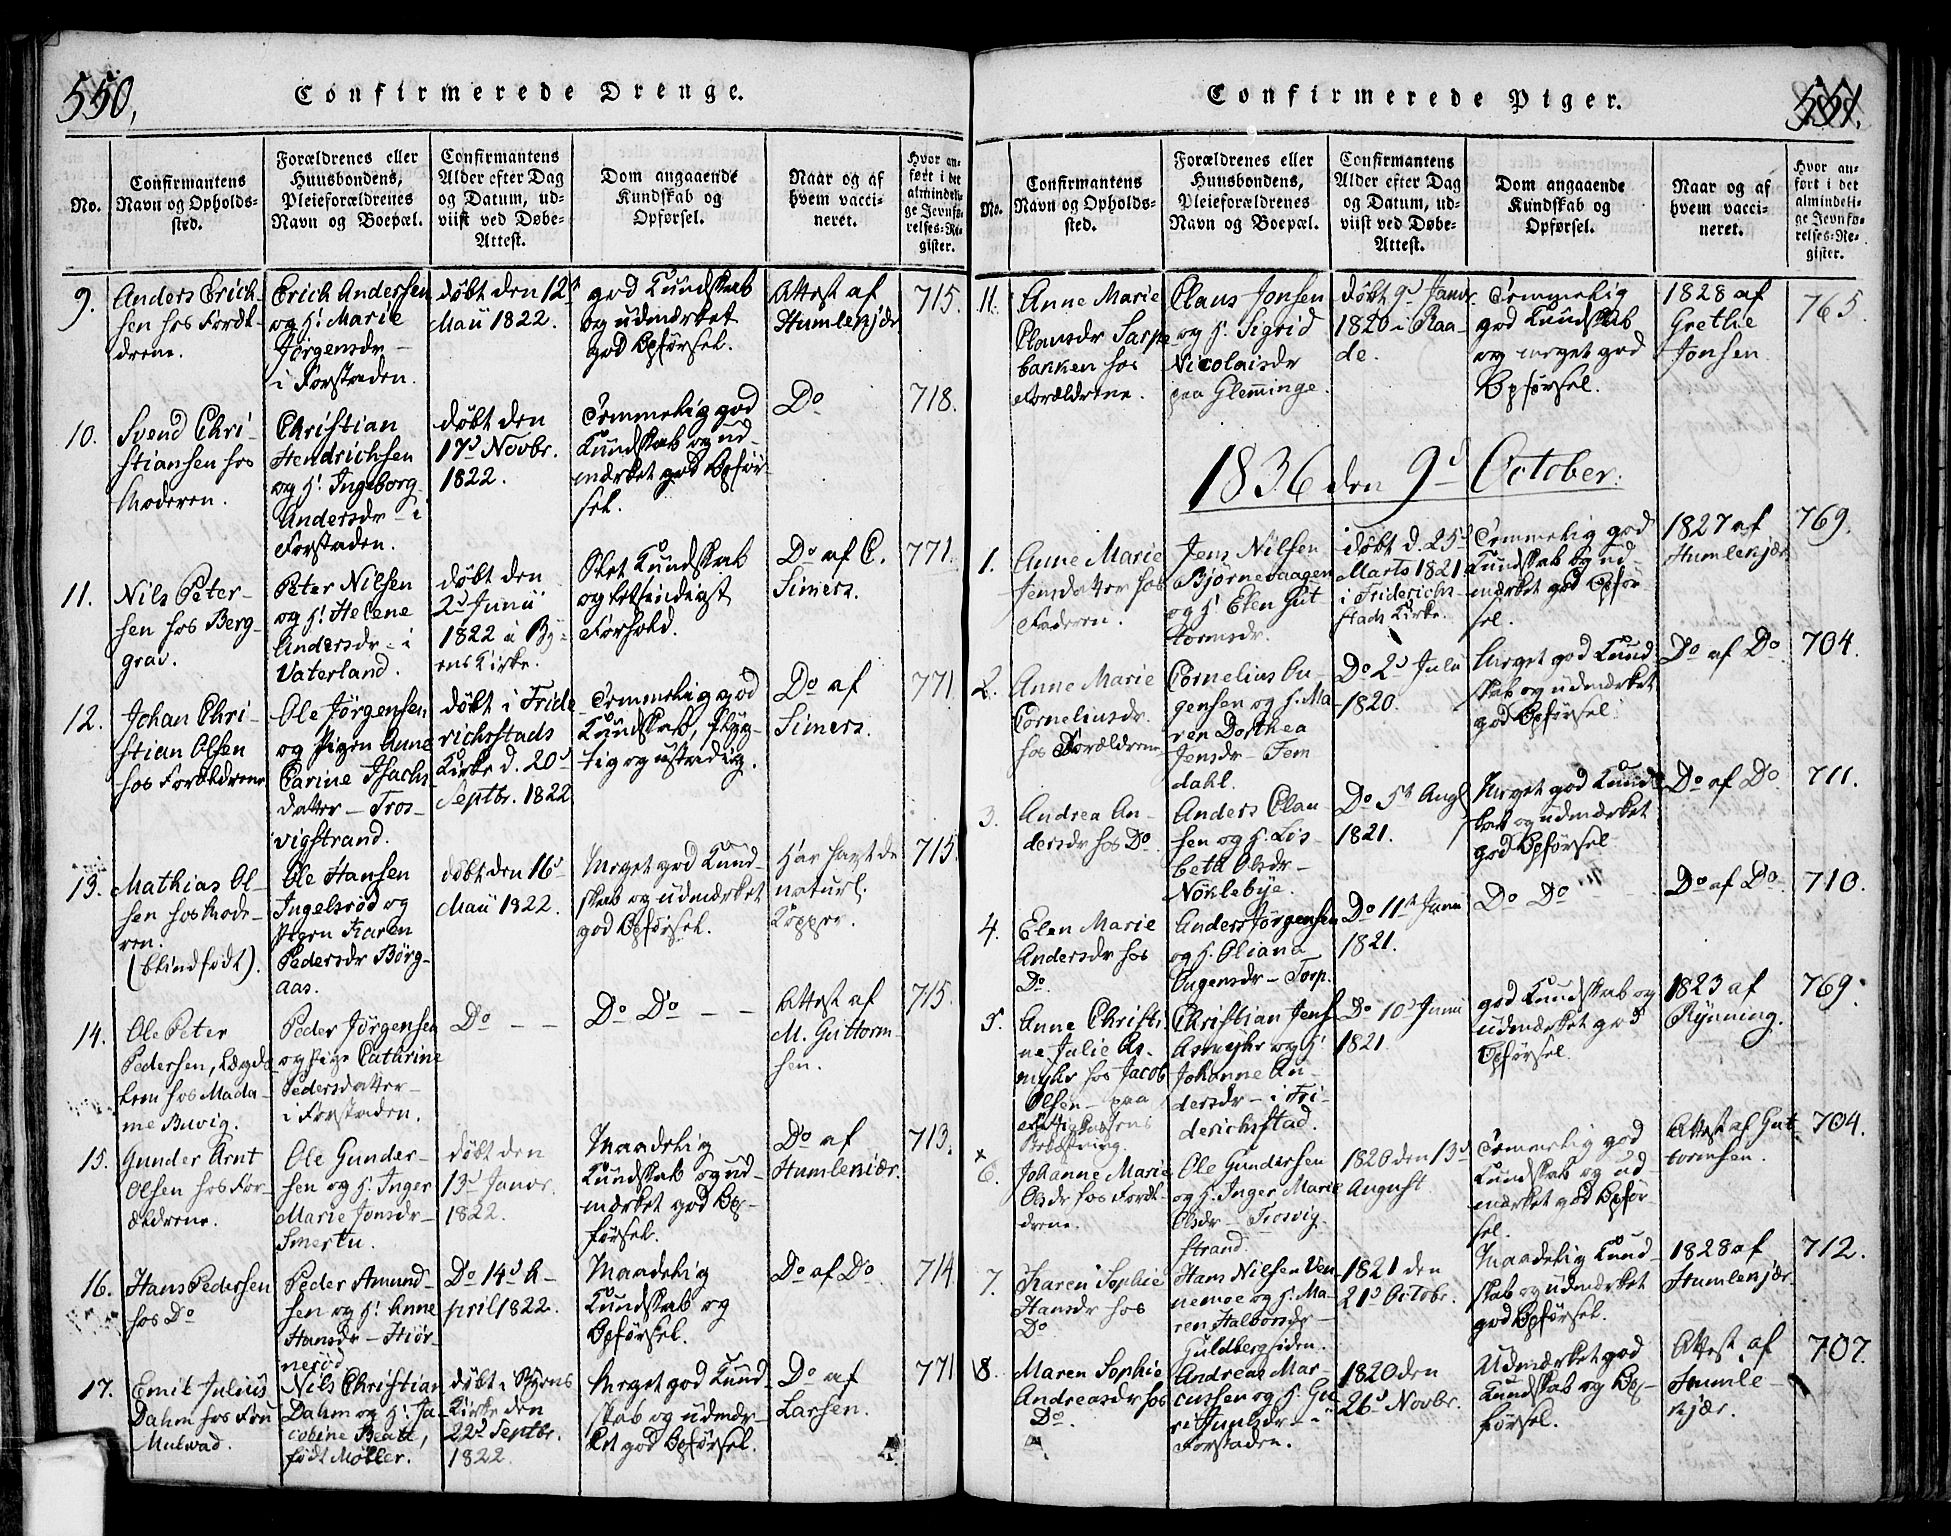 550,
Confirmerede Drenge.
No.
Confirmantens
Navn og Opholds-
sted.
Forældrenes eller
Huusbondens,
Pleieforældrenes
Navn og Boepæl.
Confirmantens
Alder efter Dag
og Datum, ud-
viist ved Døbe-
Attest.
Dom angaaende
Kundskab og
Opførsel.
Naar og af
hvem vacci-
neret.
Hvor an-
ført i det
almindeli-
ge Jevnfø-
relses-Re-
gister.
9.
Anders Erich-
sen hos Foræl-
drene.
Erich Andersen
og H. Marie
Jörgensdr -
i Forstaden.
døbt den 12t
Maii 1822.
god Kundskab
og udmærket
god Opførsel.
Attest af
Humlekjær
715.
10.
Svend Chri-
stiansen hos
Moderen.
Christian
Hendrichsen
og H. Ingeborg
Andersdr - i
Forstaden.
døbt den
17d Novbr.
1822.
Temmelig god
Kundskab og ud-
mærket god Opfør-
sel.
Do
718.
11.
Nils Peter-
sen hos Berg-
grav.
Peter Nilsen
og H. Helene
Andersdr - i
Vaterland.
døbt den
2d Junii
1822 i By-
ens Kirke.
Slet Kundskab
og letsindigst
Forhold.
Do af C.
Simers.
771.
12.
Johan Chri-
stian Olsen
hos Forældrene
Ole Jørgensen
og Pigen Anne
Carine Isachs
datter - Tros-
vigstrand.
døbt i Fride
richsstads
Kirke d. 20d
Septbr. 1822
Temmelig god
Kundskab, flyg-
tig og ustadig.
Do af
Simers.
771
13.
Mathias Ol-
sen hos Mode-
ren.
(blindfødt).
Ole Hansen
Ingelsrød og
Pigen Karen
Pedersdr Börg-
aas.
døbt den 16d
Maii 1822.
Meget god Kund-
skab og udmærket
god Opførsel.
Har havt de
naturl.
Kopper.
715.
14.
Ole Peter
Pedersen, Lægds
lem hos Mada-
me Buvig.
Peder Jørgensen
og Pige Cathrine
Pedersdatter -
i Forstaden.
Do - -
Do Do - -
Attest af
M. Guttorm-
sen.
715.
15.
Gunder Arnt
Olsen hos For-
ældrene.
Ole Gunder-
sen og H. Inger
Marie Jonsdr -
Smertu.
døbt den
13d Janvr.
1822.
Maadelig
Kundskab og ud-
mærket god Op-
førsel.
Do af
Humlekiær.
713.
16.
Hans Pedersen
hos Do
Peder Amund-
sen og H. Anne
Hansdr - Hiör-
nerød
Do 14d A-
pril 1822.
Maadelig
Kundskab og
Opførsel.
Do af Do
714
17.
Emil Julius
Dahm hos Fru
Mulwad.
Nils Christian
Dahm og H. Ja-
cobine Beate,
født Møller.
døbt i Byens
Kirke den
22d Septbr.
1822
Meget god Kund-
skab og udmær-
ket god Opførsel.
Do af
Larsen.
771
551.
Confirmerede Piger.
No.
Confirmantens
Navn og Opholds-
sted.
Forældrenes eller
Huusbondens,
Pleieforældrenes
Navn og Boepæl.
Confirmantens
Alder efter Dag
og Datum, ud-
viist ved Døbe-
Attest.
Dom angaaende
Kundskab og
Opførsel.
Naar og af
hvem vacci-
neret.
Hvor an-
ført i det
almindeli-
ge Jevnfø-
relses-Re-
gister.
11.
Anne Marie
Clausdr Sarpe
banken hos
Forældrene.
Claus Jonsen
og H. Sigrid
Nicolaisdr
paa Glemminge.
døbt 9d Janvr
1820 i Raa-
de.
Temmelig
god Kundskab
og meget god
Opførsel.
1828 af
Grethe
Jonsen
765
1836 den 9d October.
1.
Anne Marie
Jensdatter hos
Faderen.
Jens Nilsen
Bjørnevaagen
og H. Elen Gut
tormsdr.
døbt d. 25d
Marts 1821
i Friderichs-
stads Kirke.
Temmelig god
Kundskab og ud-
mærket god Opfør-
sel.
1827 af
Humlekjær
769.
2.
Anne Marie
Corneliusdr.
hos Forældrene
Cornelius Au-
gensen og H. Ma
ren Dorthea
Jensdr - Tem
dahl.
Do 2d Julii
1820.
Meget god Kund-
skab og udmærket
god Opførsel
Do af Do
704.
3.
Andrea An-
dersdr hos Do
Anders Clau
sen og H. Lis-
beth Olsdr -
Nøklebye.
Do 5t Augs
1821.
Meget god Kund
skab og udmærket
god Opførsel
Do af Do
711.
4.
Elen Marie
Andersdr hos
Do.
Anders Jørgensen
og H. Oliana
Augensdr - Torp.
Do 11t Junii
1821.
Do Do
Do af Do
710.
5.
Anne Christi
ne Julie As-
myhr hos Jacob
Olsen - paa
Befæstning.
Christian Jens
Asmyhr og H.
Johanne An-
dersdr - i Fri-
derichsstad.
Do 10d Junii
1821
god Kundskab og
udmærket god
Opførsel.
1823 af
Rynning.
769.
6.
Johanne Marie
Olsdr hos Foræl-
drene.
Ole Gundersen
og H. Inger Marie
Olsdr - Trosvig-
strand.
1820 den 13d
August
Temmelig god
Kundskab og ud-
mærket god Opfør-
sel.
Attest af Gut
tormsen.
704.
7.
Karen Sophie
Hansdr hos
Do
Hans Nilsen Ven-
nemoe og H. Ma-
ren Halvorsdr -
Guldbergsiden.
1821 den
21d Octobr.
Maadelig Kund-
skab og udmærket
god Opførsel.
1828 af
Humlekjær.
712.
8.
Maren Sophie
Andreasdr hos
Do.
Andreas Mar-
cussen og H. Gu-
ri Jensdr - i
Forstaden.
1820 den
26d Novbr.
Udmærket god
Kundskab og Op-
førsel.
Attest af
Humle-
kjær.
707.